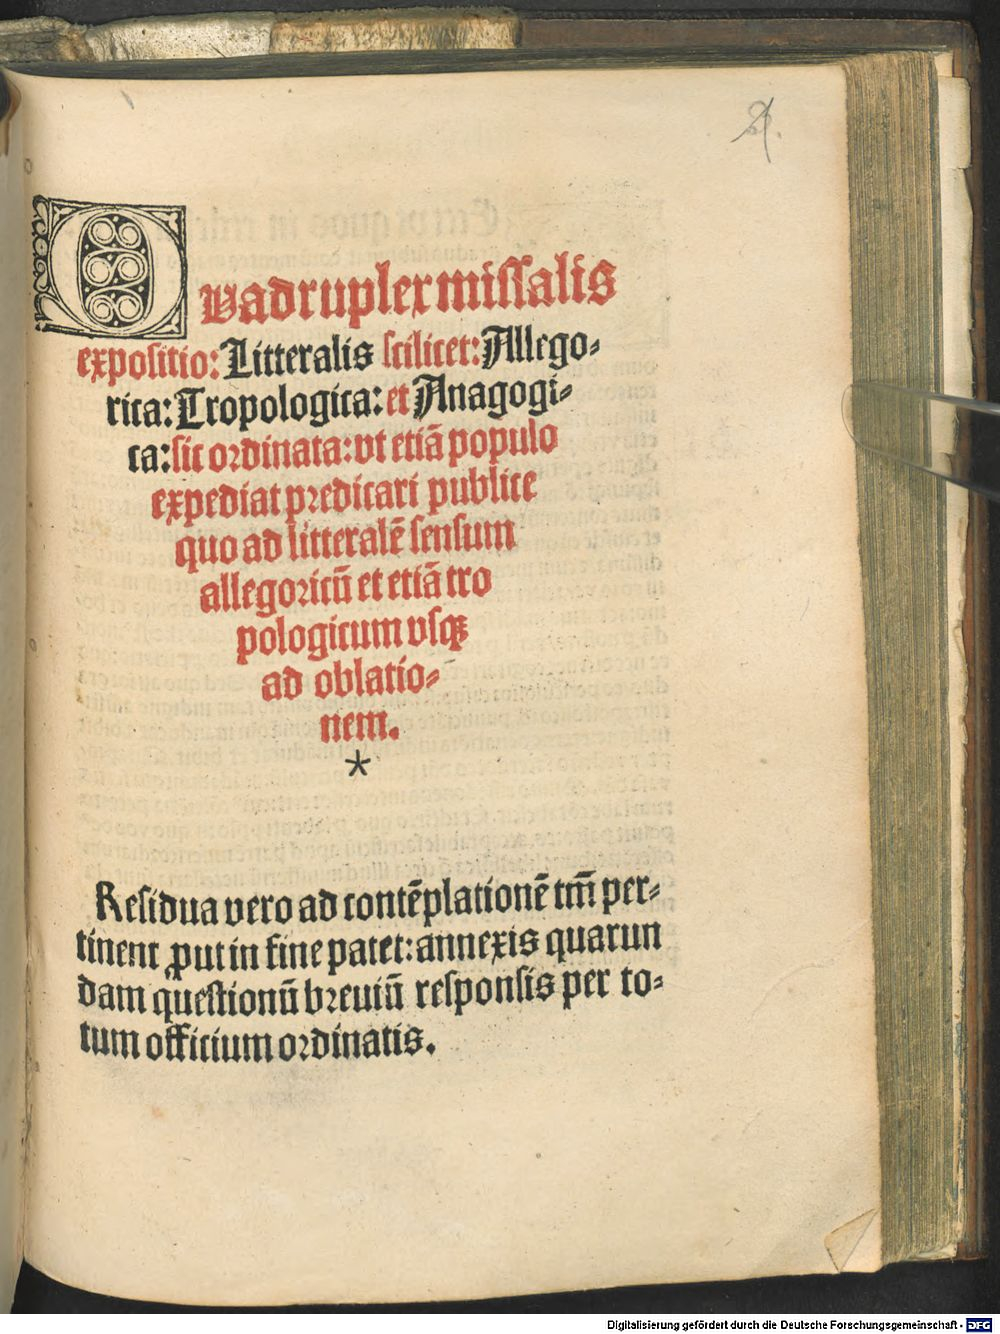 Quadruplex missalis
expositio: Litteralis scilicet: Allego-
rica: Tropologica: et Anagogi-
ca: sic ordinata: vt etiã populo
expediat predicari publice
quo ad litteralẽ sensum
allegoricũ et etiã tro
pologicum vsqꝫ
ad oblatio-
nem.
*
Residua vero ad contẽplationẽ tm̃ per-
tinent ꝓut in fine patet: annexis quarun
dam questionũ breuiũ responsis per to-
tum officium ordinatis.
Digitalisierung gefördert durch die Deutsche Forschungsgemeinschaft - DFG